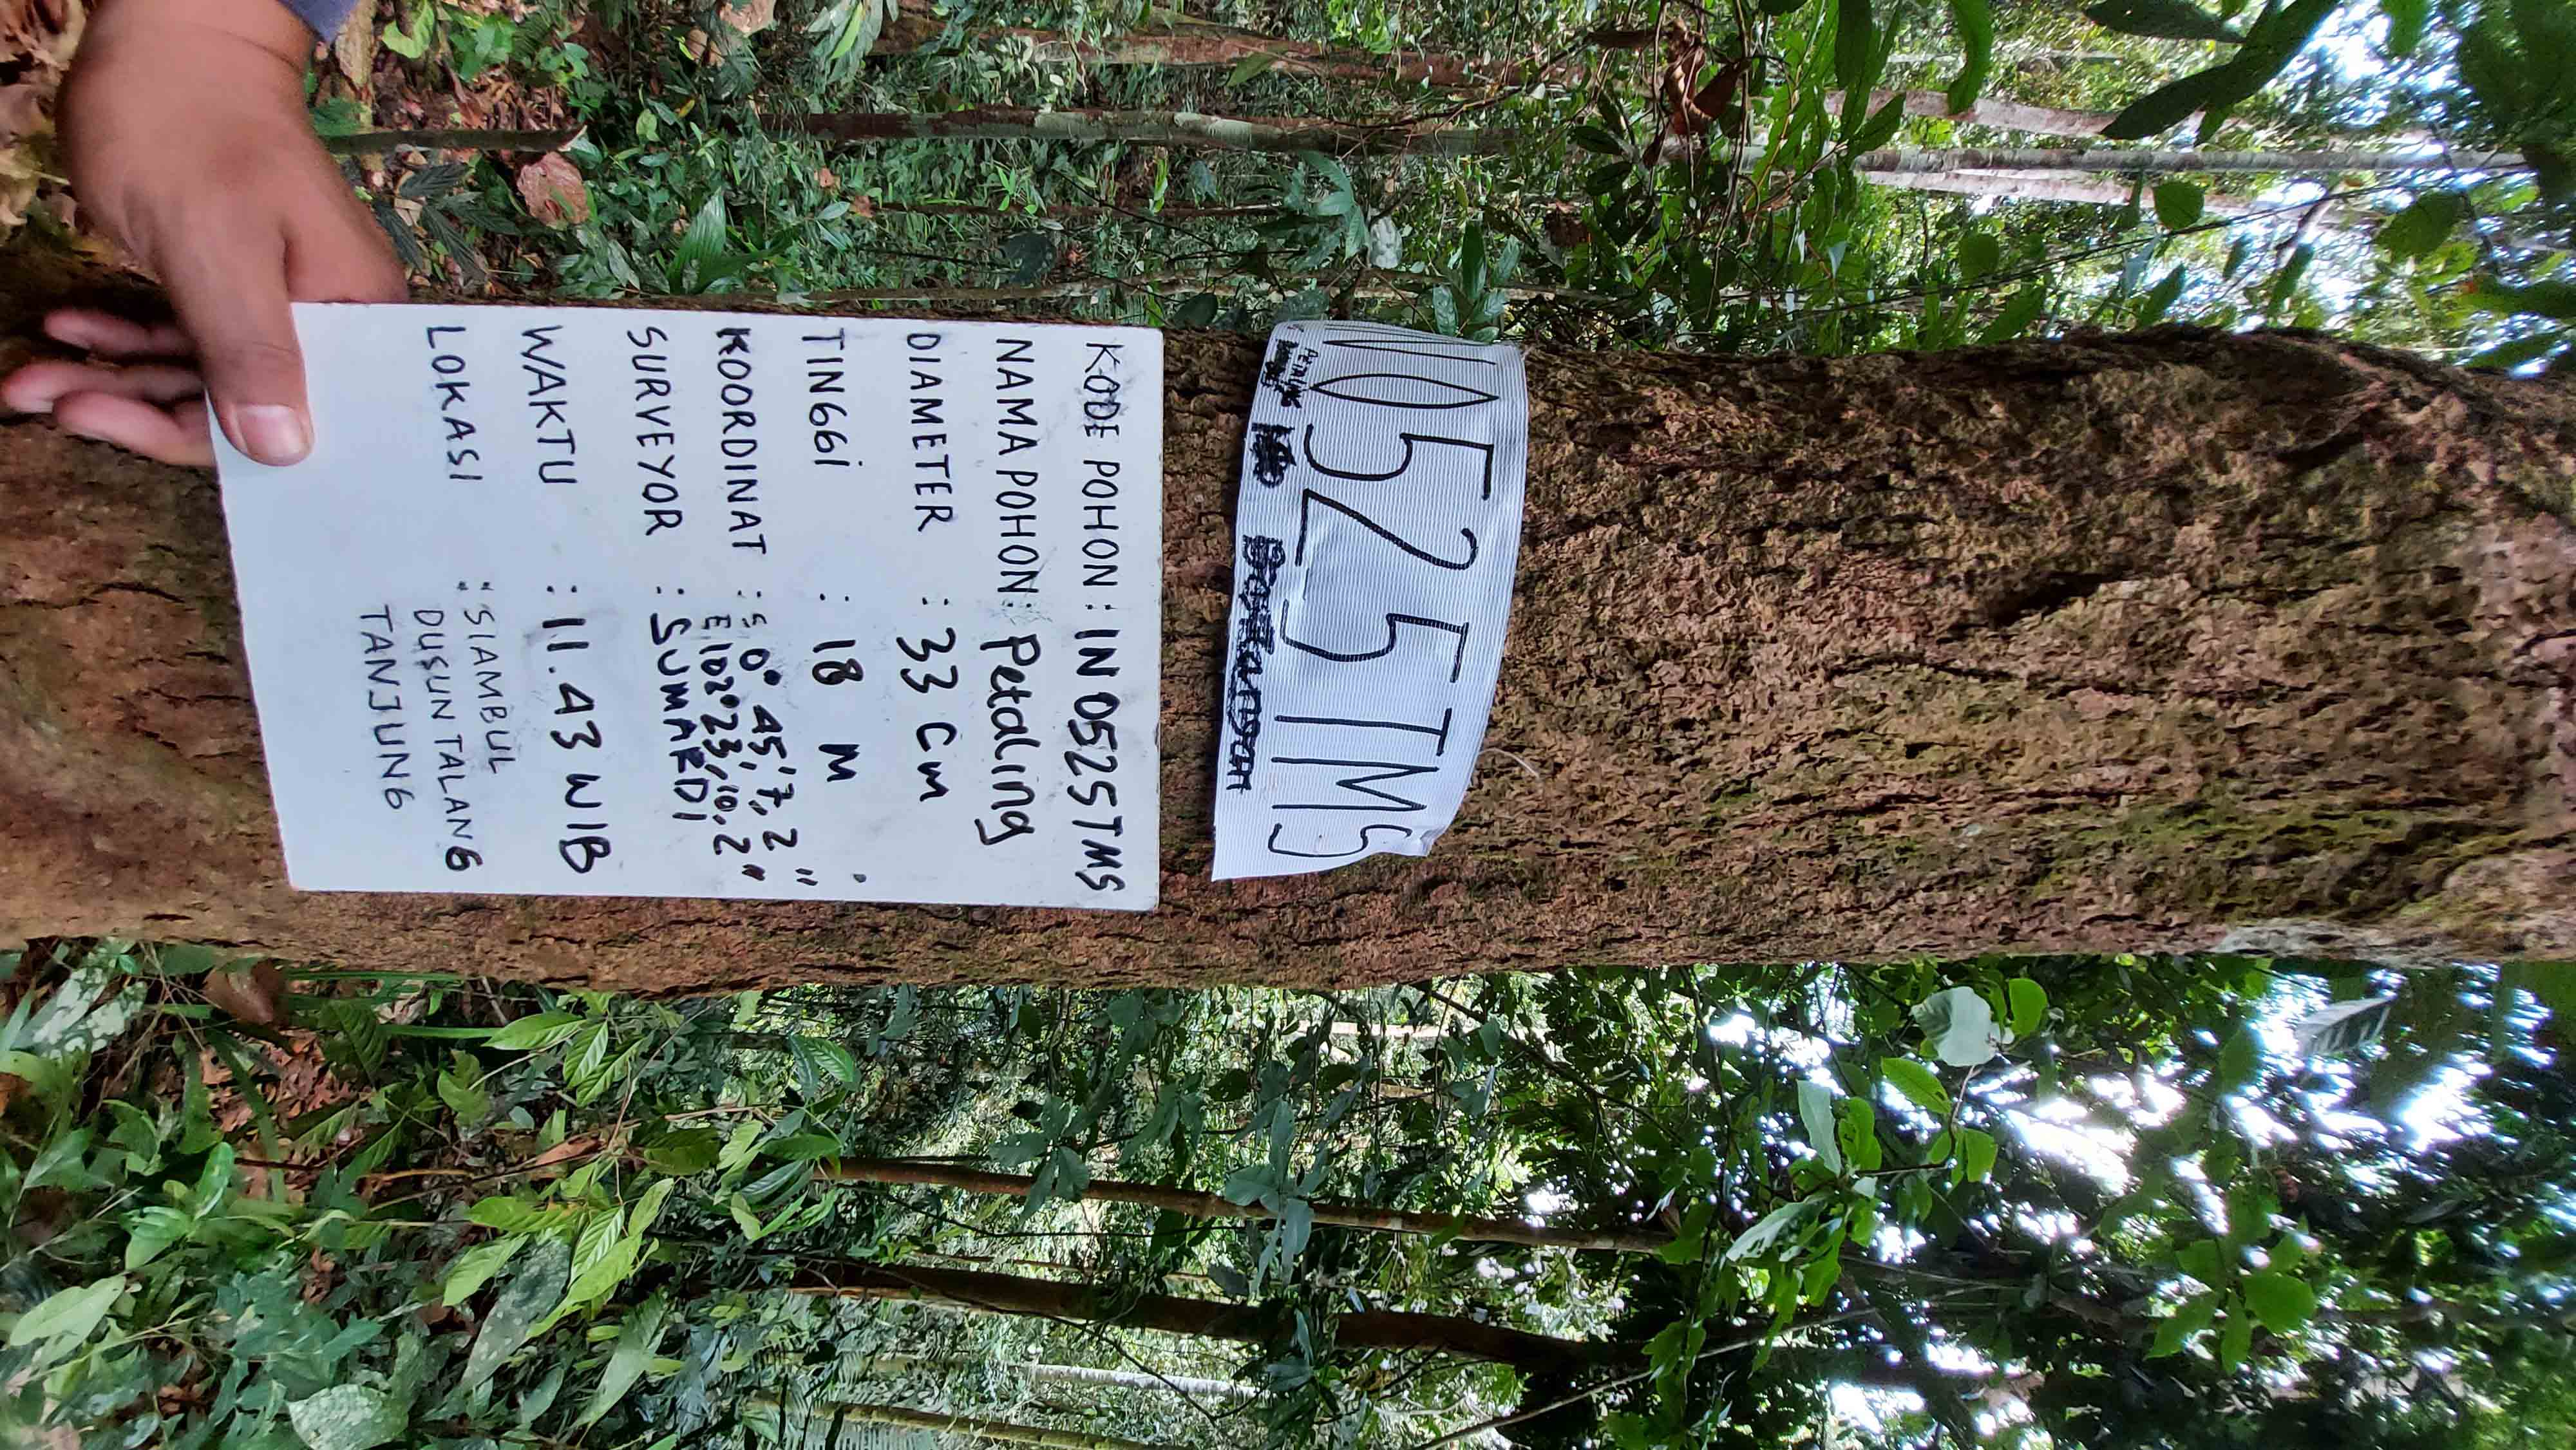 N0525TMS
PETALING
KODE POHON : IN 0525TMS
NAMA POHON : Petaling
DIAMETER : 33 Cm
TINGGi : 18 M
KOORDINAT : S 0° 45,'7,2"
E 102°23,'10,2"
SURVEYOR : SUMARDI
WAKTU : 11.43 WIB
LOKASI : SIAMBUL
DUSUN TALANG
TANJUNG